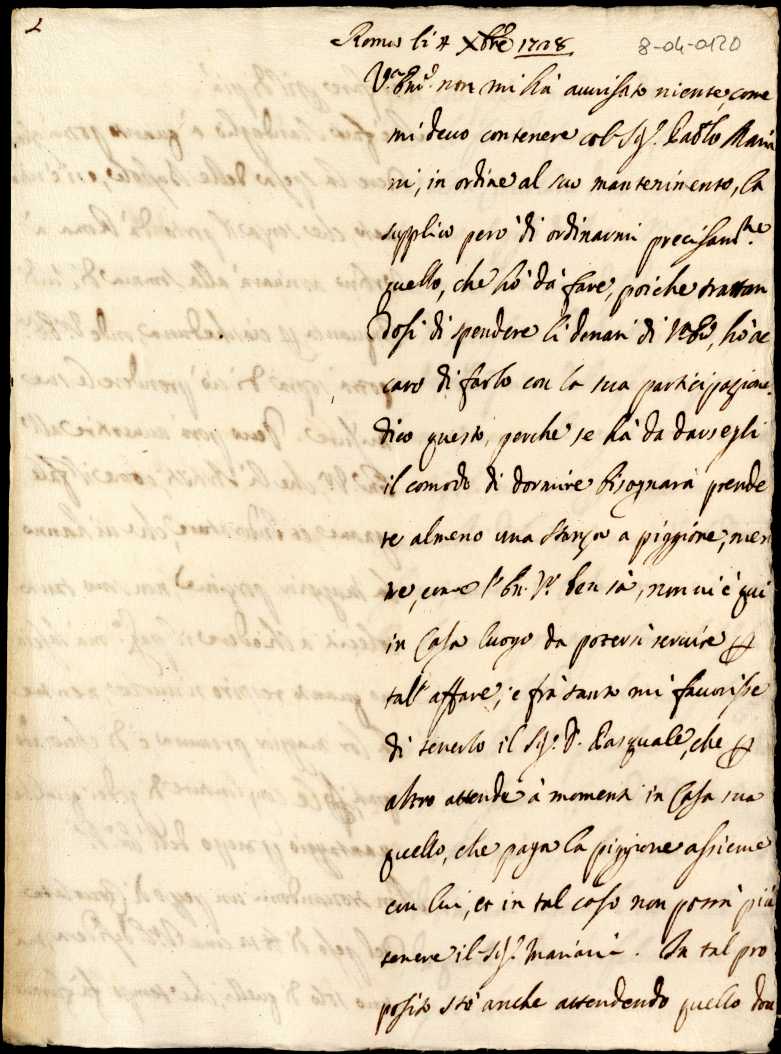 2
Roma li 4 Xbre 1728
8-04-0120
V. Em.a non mi hà auuisato niente, come
mi deuo contenere col Sig.r Paolo Maria
ni, in ordine al suo mantenimento, la
supplico però di ordinarmi precisam.te
quello, che hò da fare, poiche trattan
dosi di spendere li denari di V. Em., hò a
caro di farlo con la sua participazione.
dico questo, perche se hà da darsegli
il comodo di dormire bisognarà prende
re almeno una stanza a piggione, men
tre, come V. Em. ben sà, non ui è qui
in Casa luogo da potersi seruire p
tall'affare, e frà tanto mi fauorisse
di tenerlo il Sig.r D. Pasquale, che p
altro attende à momenti in Casa sua
quello, che paga la piggione assieme
con lui, et in tal caso non potrà più
tenere il Sig.r Mariani. In tal pro
posito stò anche attendendo quello dou